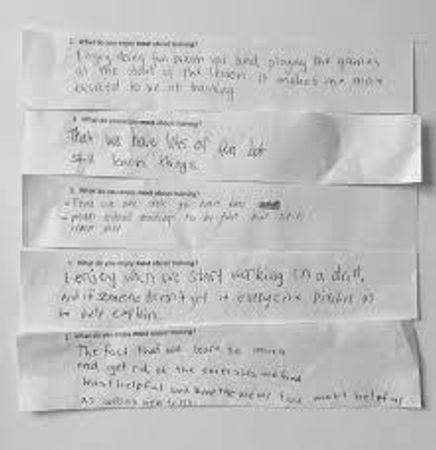 2. What do you enjoy most about training?
I enjoy doing fun and playing the games
at the start of the lesson it makes me more
excited to be at training
What do you enjoy most about training?
That we have lots of fun but
still learn things
What do you enjoy most about training?
- That we are able to have fun
to be fun but still
What do you enjoy most about training?
I enjoy when we start working on a drill,
and if someone doesn't get it everyone pitches in
to help explain
What do you enjoy most about training?
The fact that we learn so much
and get rid of the exercises we find
least helpful and the most helpful
as